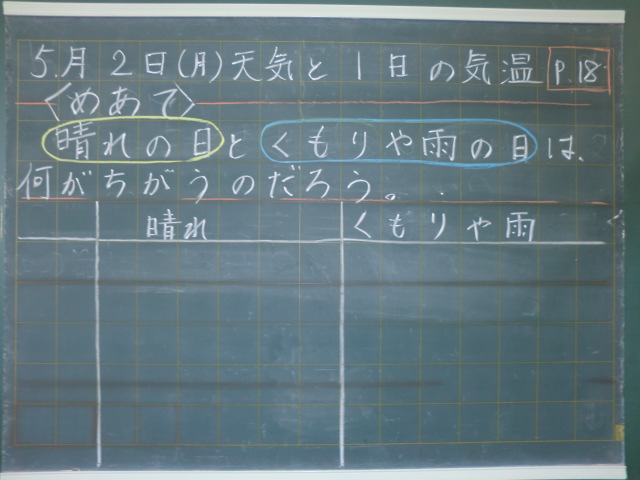 5.月2日(月)天気と1日の気温 P.18
〈めあて〉
晴れの日とくもりや雨の日は、
何がちがうのだろう。
晴れ くもりや雨